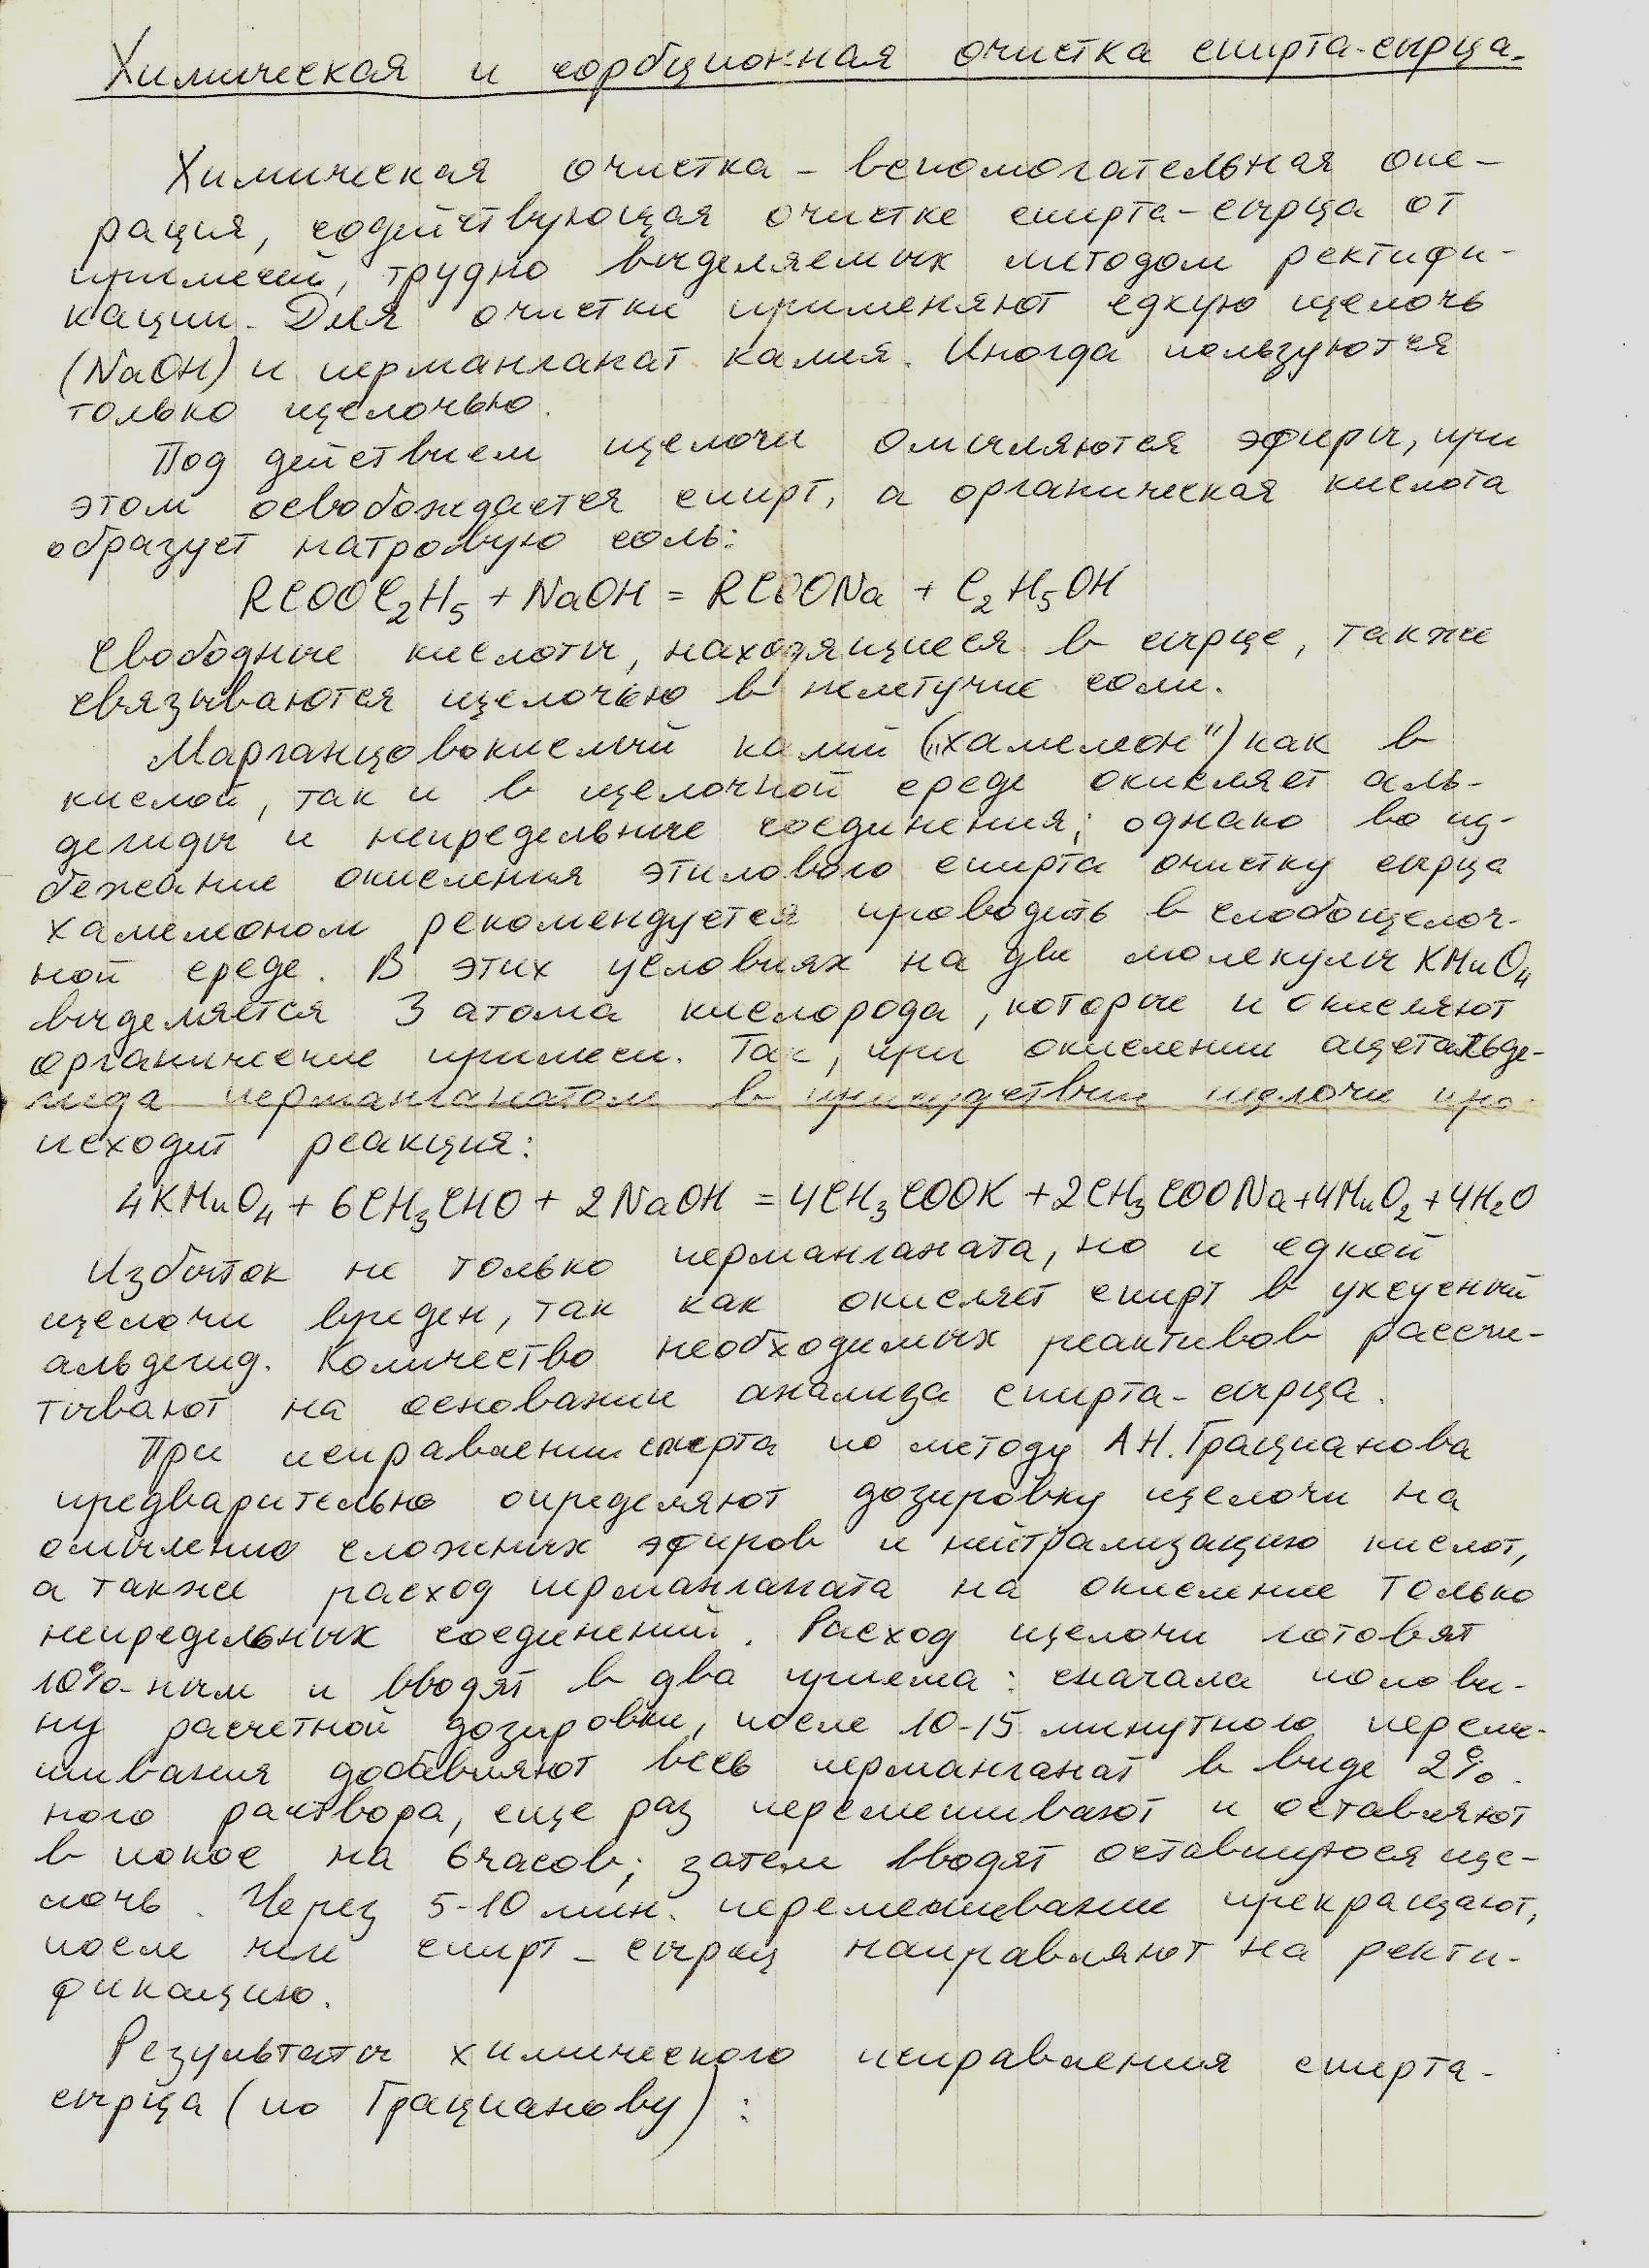 Химическая и сорбционная очистка спирта-сырца.
Химическая очистка – вспомогательная опе-
рация, содействующая очистке спирта-сырца от
примесей, трудно выделяемых методом ректифи-
кации. Для очистки применяют едкую щелочь
(NaOH) и перманганат калия. Иногда пользуются
только щелочью.
Под действием щелочи омыляются эфиры, при
этом освобождается спирт, а органическая кислота
образует натровую соль:
RCOOC₂H₅ + NaOH = RCOONa + C₂H₅OH
Свободные кислоты, находящиеся в сырце, также
связываются щелочью в нелетучие соли.
Марганцовокислый калий („хамелеон“) как в
кислой, так и в щелочной среде окисляет аль-
дегиды и непредельные соединения; однако во из-
бежание окисления этилового спирта очистку сырца
хамелеоном рекомендуется проводить в слабощелоч-
ной среде. В этих условиях на две молекулы KMnO₄
выделяется 3 атома кислорода, которые и окисляют
органические примеси. Так, при окислении ацетальде-
гида перманганатом в присудствии щелочи про-
исходит реакция:
4KMnO₄ + 6CH₃CHO + 2NaOH = 4CH₃COOK + 2CH₃COONa + 4MnO₂ + 4H₂O
Избыток не только перманганата, но и едкой
щелочи вреден, так как окисляет спирт в уксусный
альдегид. Количество необходимых реактивов рассчи-
тывают на основании анализа спирта-сырца.
При исправлении спирта по методу А.Н. Грацианова
предварительно определяют дозировку щелочи на
омыление сложных эфиров и нейтрализацию кислот,
а также расход перманганата на окисление только
непредельных соединений. Расход щелочи готовят
10%-ным и вводят в два приема: сначала полови-
ну расчетной дозировки, после 10-15 минутного переме-
шивания добавляют весь перманганат в виде 2%-
ного раствора, еще раз перемешивают и оставляют
в покое на 6 часов; затем вводят оставшуюся ще-
лочь. Через 5-10 мин. перемешивание прекращают,
после чего спирт-сырец направляют на ректи-
фикацию.
Результаты химического исправления спирта-
сырца (по Грацианову):